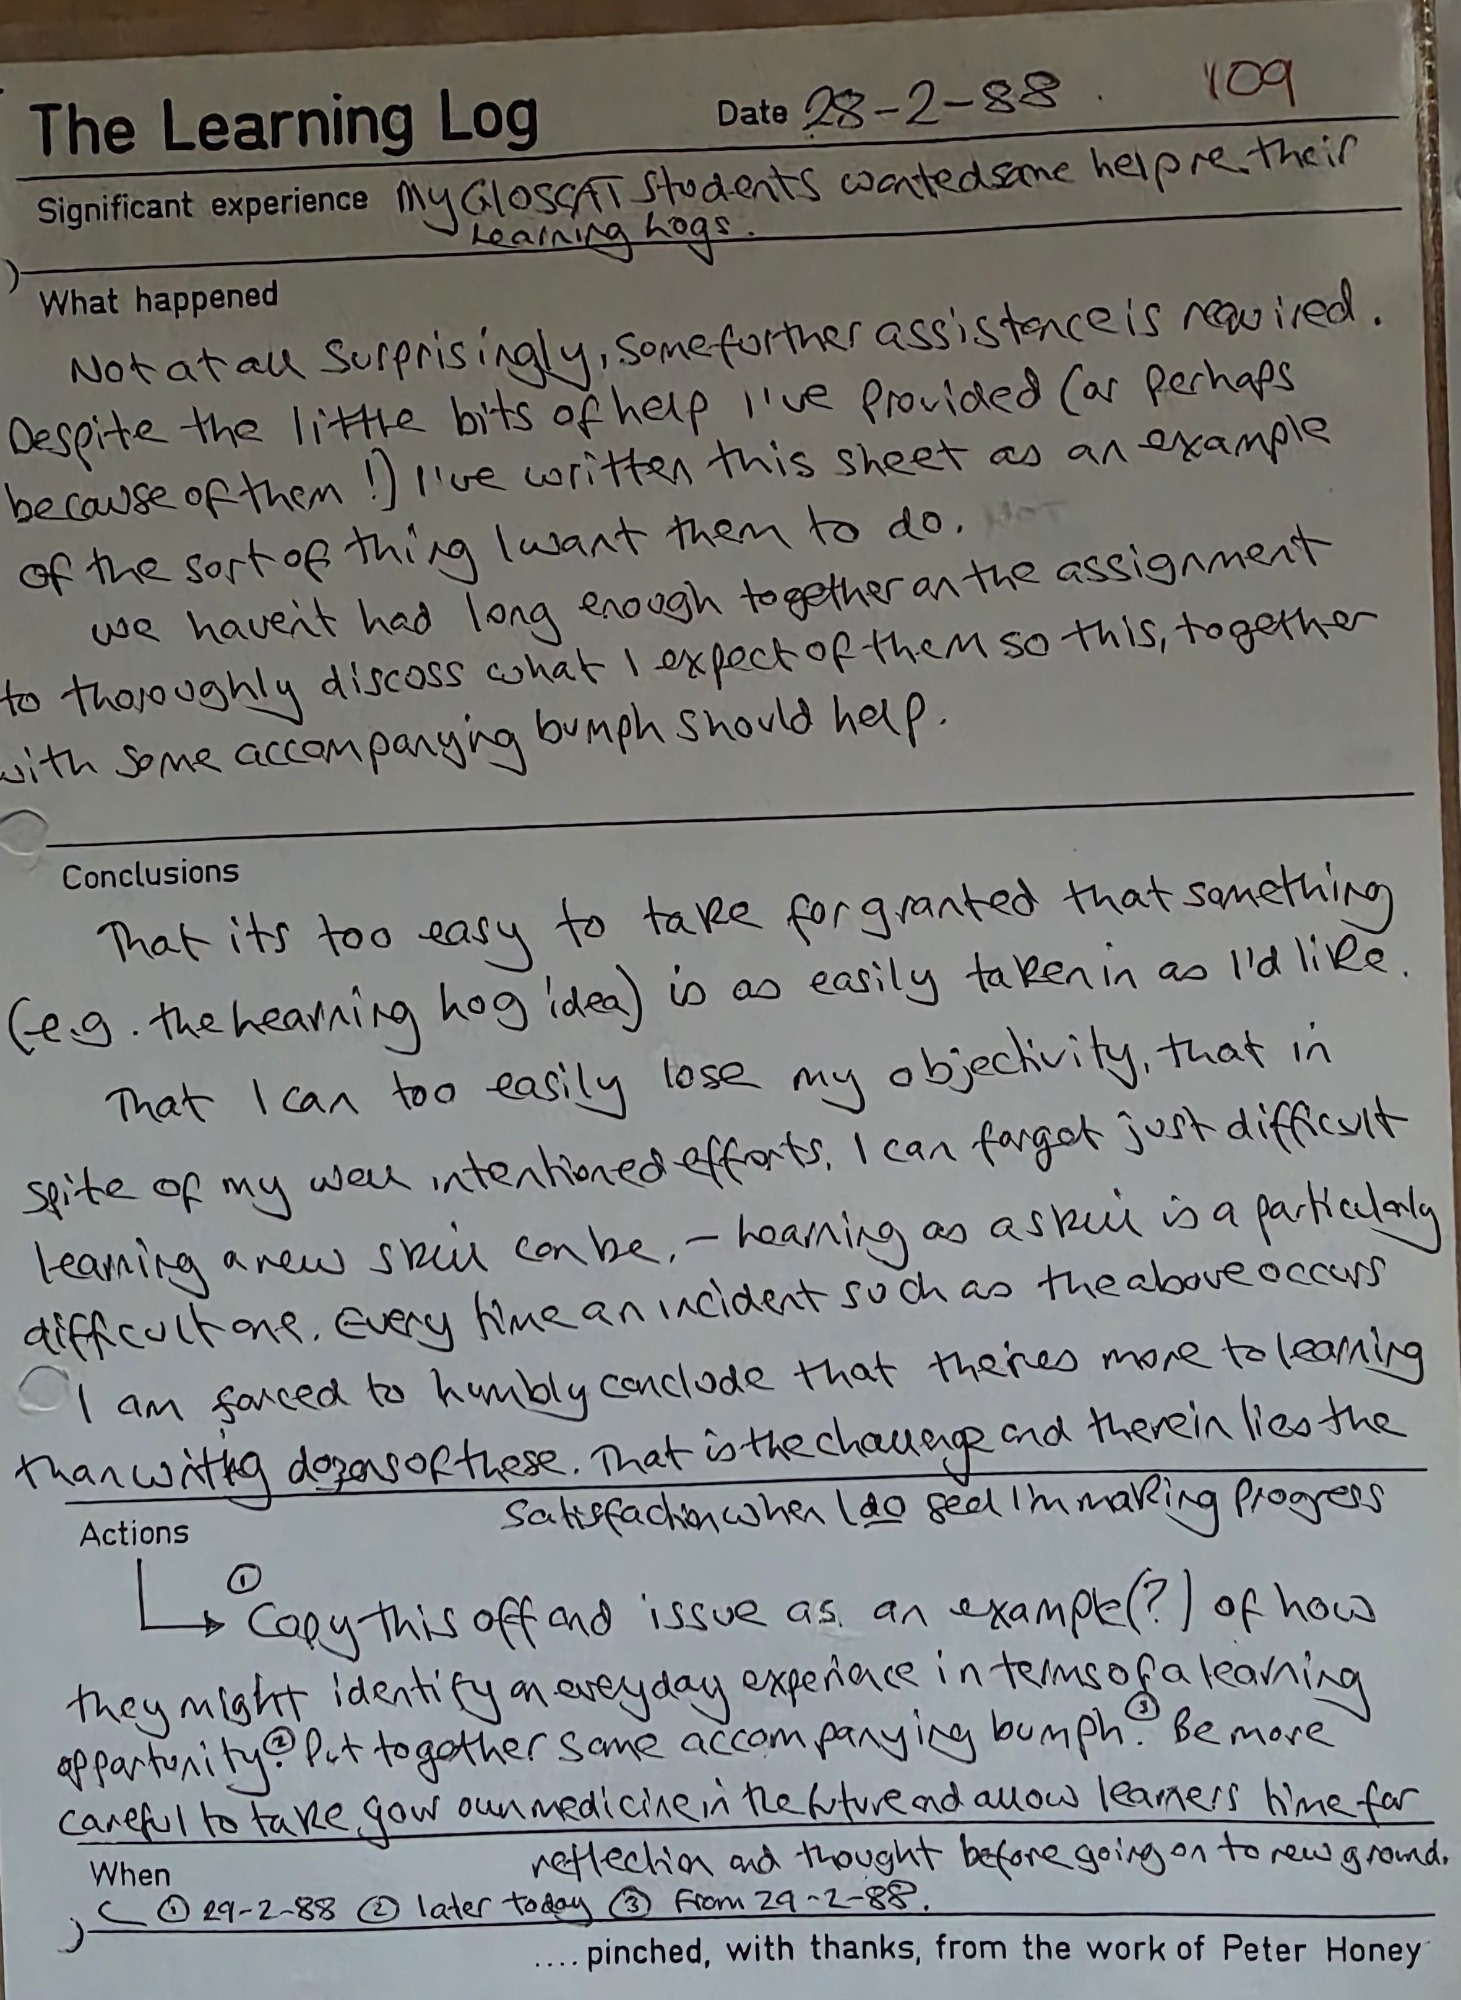 The Learning Log Date 28-2-88. 109
Significant experience My GLOSCAT students wanted some help re. their
Learning Logs.
What happened
Not at all surprisingly, some further assistence is required.
Despite the little bits of help I've provided (or perhaps
because of them!) I've written this sheet as an example
of the sort of thing I want them to do. NOT
we haven't had long enough together on the assignment
to thoroughly discoss what I expect of them so this, together
with some accompanying bumph should help.
Conclusions
That its too easy to take for granted that something
(e.g. the Learning Log idea) is as easily taken in as I'd like.
That I can too easily lose my objectivity, that in
spite of my well intentioned efforts, I can forget just difficult
learning a new skill can be, - Learning as a skill is a particularly
difficult one. Every time an incident such as the above occurs
I am forced to humbly conclude that there's more to learning
than writing dozens of these. That is the challenge and therein lies the
satisfaction when I do feel I'm making progress
Actions
① Copy this off and issue as an example (?) of how
they might identify an everyday experience in terms of a learning
opportunity. ② Put together some accompanying bumph. ③ Be more
careful to take your own medicine in the future and allow learners time for
reflection and thought before going on to new ground.
When
① 29-2-88 ② later today ③ From 29-2-88.
.... pinched, with thanks, from the work of Peter Honey